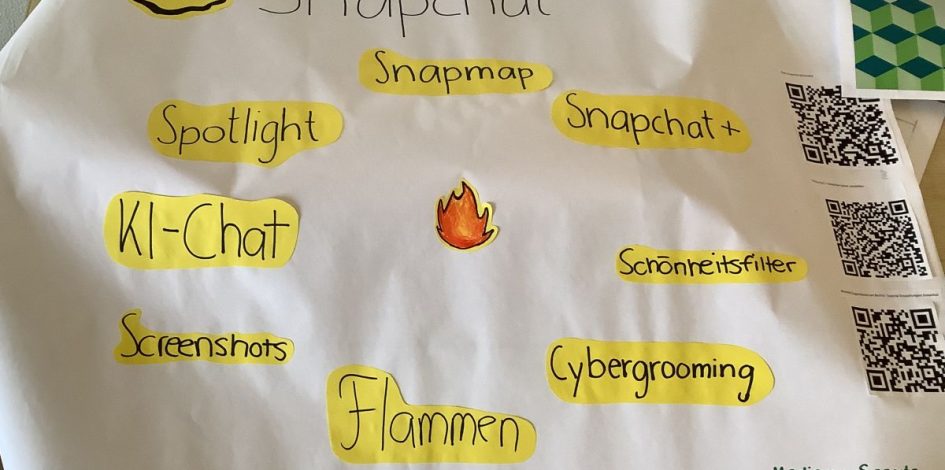 Snapchat
Snapmap
Spotlight
Snapchat+
KI-Chat
Schönheitsfilter
Screenshots
Cybergrooming
Flammen